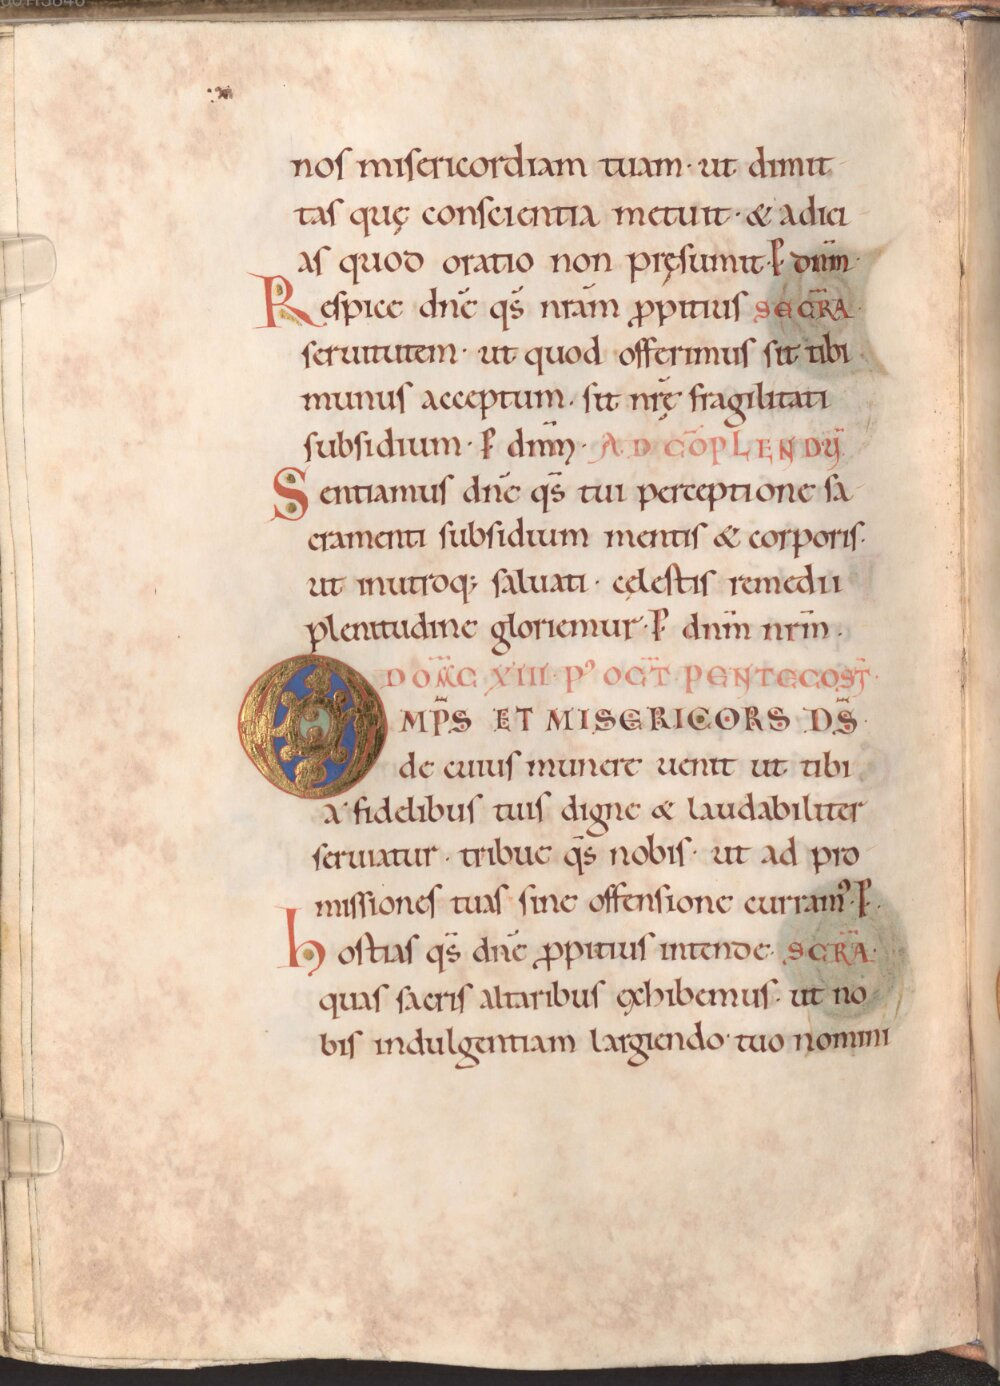 nos misericordiam tuam · ut dimit
tas quę conscientia metuit · & adici
as quod oratio non pręsumit · P dn̄m ·
Respice dn̄e qs̄ nr̄am ꝓpitius SECR̄A
seruitutem · ut quod offerimus sit tibi
munus acceptum · sit nr̄ę fragilitati
subsidium · P dn̄m · AD CŌPLENDŪ
Sentiamus dn̄e qs̄ tui perceptione sa
cramenti subsidium mentis & corporis ·
ut inutroq; saluati · cęlestis remedii
plenitudine gloriemur · P dn̄m nr̄m ·
DOM̄C XIII P' OCT̄ PENTECOST̄ ·
OMP̄S ET MISERICORS DS̄ ·
de cuius munere uenit ut tibi
a fidelibus tuis digne & laudabiliter
seruiatur · tribue qs̄ nobis · ut ad pro
missiones tuas sine offensione curram' · P ·
hostias qs̄ dn̄e ꝓpitius intende · SCR̄A ·
quas sacris altaribus exhibemus · ut no
bis indulgentiam largiendo · tuo nomini